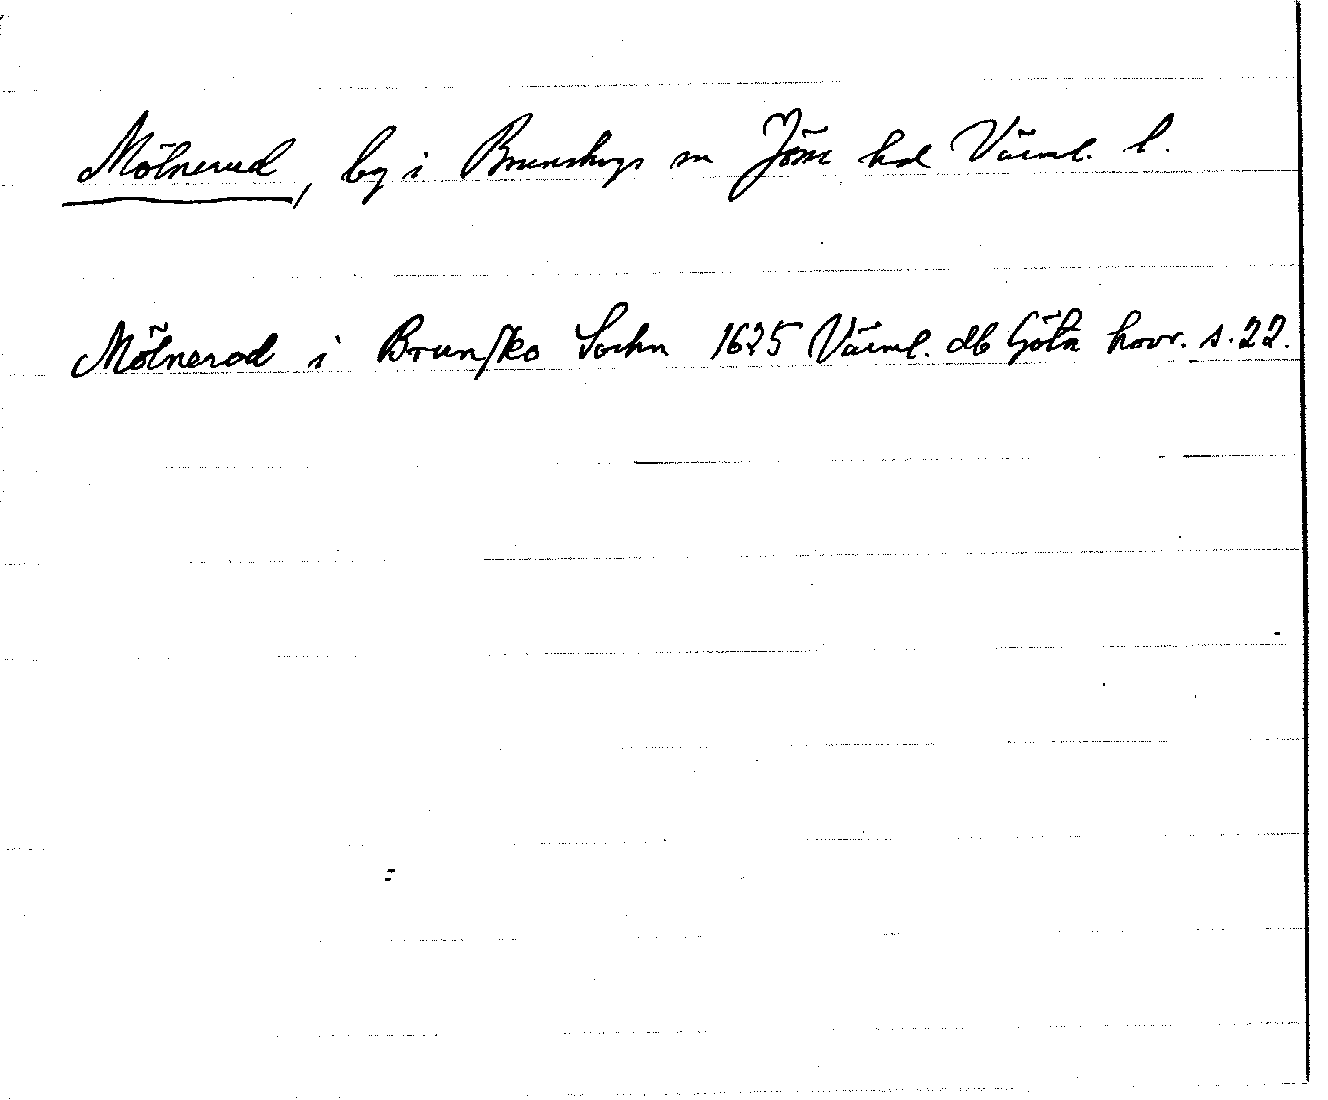 Mölnerud, by i Brunskogs sn Jösse hd Värml. l.
Mölnerod i Brunſko Sochn 1625 Värml. db Göta hovr. s. 22.